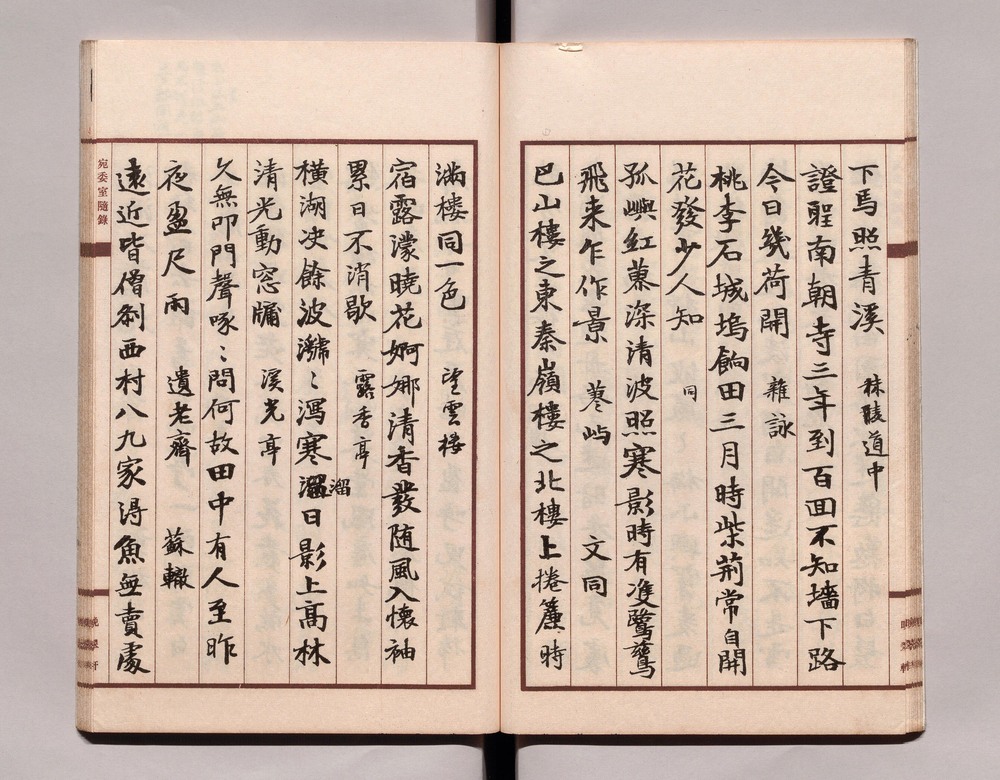 下馬照青溪 秣陵道中
證聖南朝寺三年到百回不知墻下路
今日幾荷開 雜詠
桃李石城塢餉田三月時柴荊常自開
花發少人知 同
孤嶼紅蓼深清波照寒影時有雙鷺鷥
飛来乍作景 蓼屿 文同
巴山樓之東秦嶺樓之北樓上捲簾時
滿樓同一色 望雲樓
宿露濛曉花婀娜清香發随風入懷袖
累日不消歇 露香亭
横湖决餘波瀄ミ瀉寒溜日影上高林
溜
清光動窓牖 溪光亭
久無叩門聲啄ミ問何故田中有人至昨
夜盈尺雨 遺老齋 蘇轍
遠近皆僧刹西村八九家得魚無賣處
宛委室隨錄